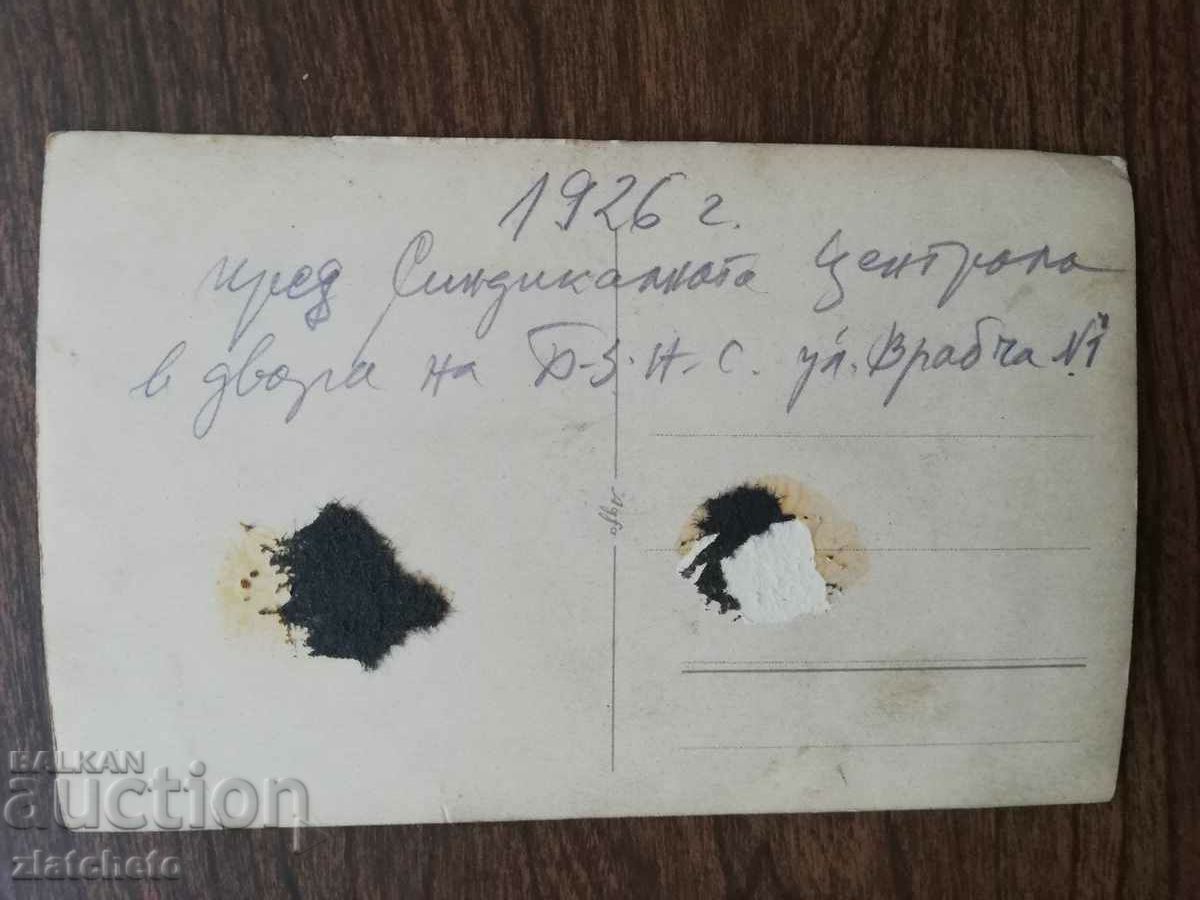 1926 г.
пред Синдикалната Централа
в двора на Б-З.Н-С. ул. Врабча №1
Agfa
BALKAN
auction
zlatcheto